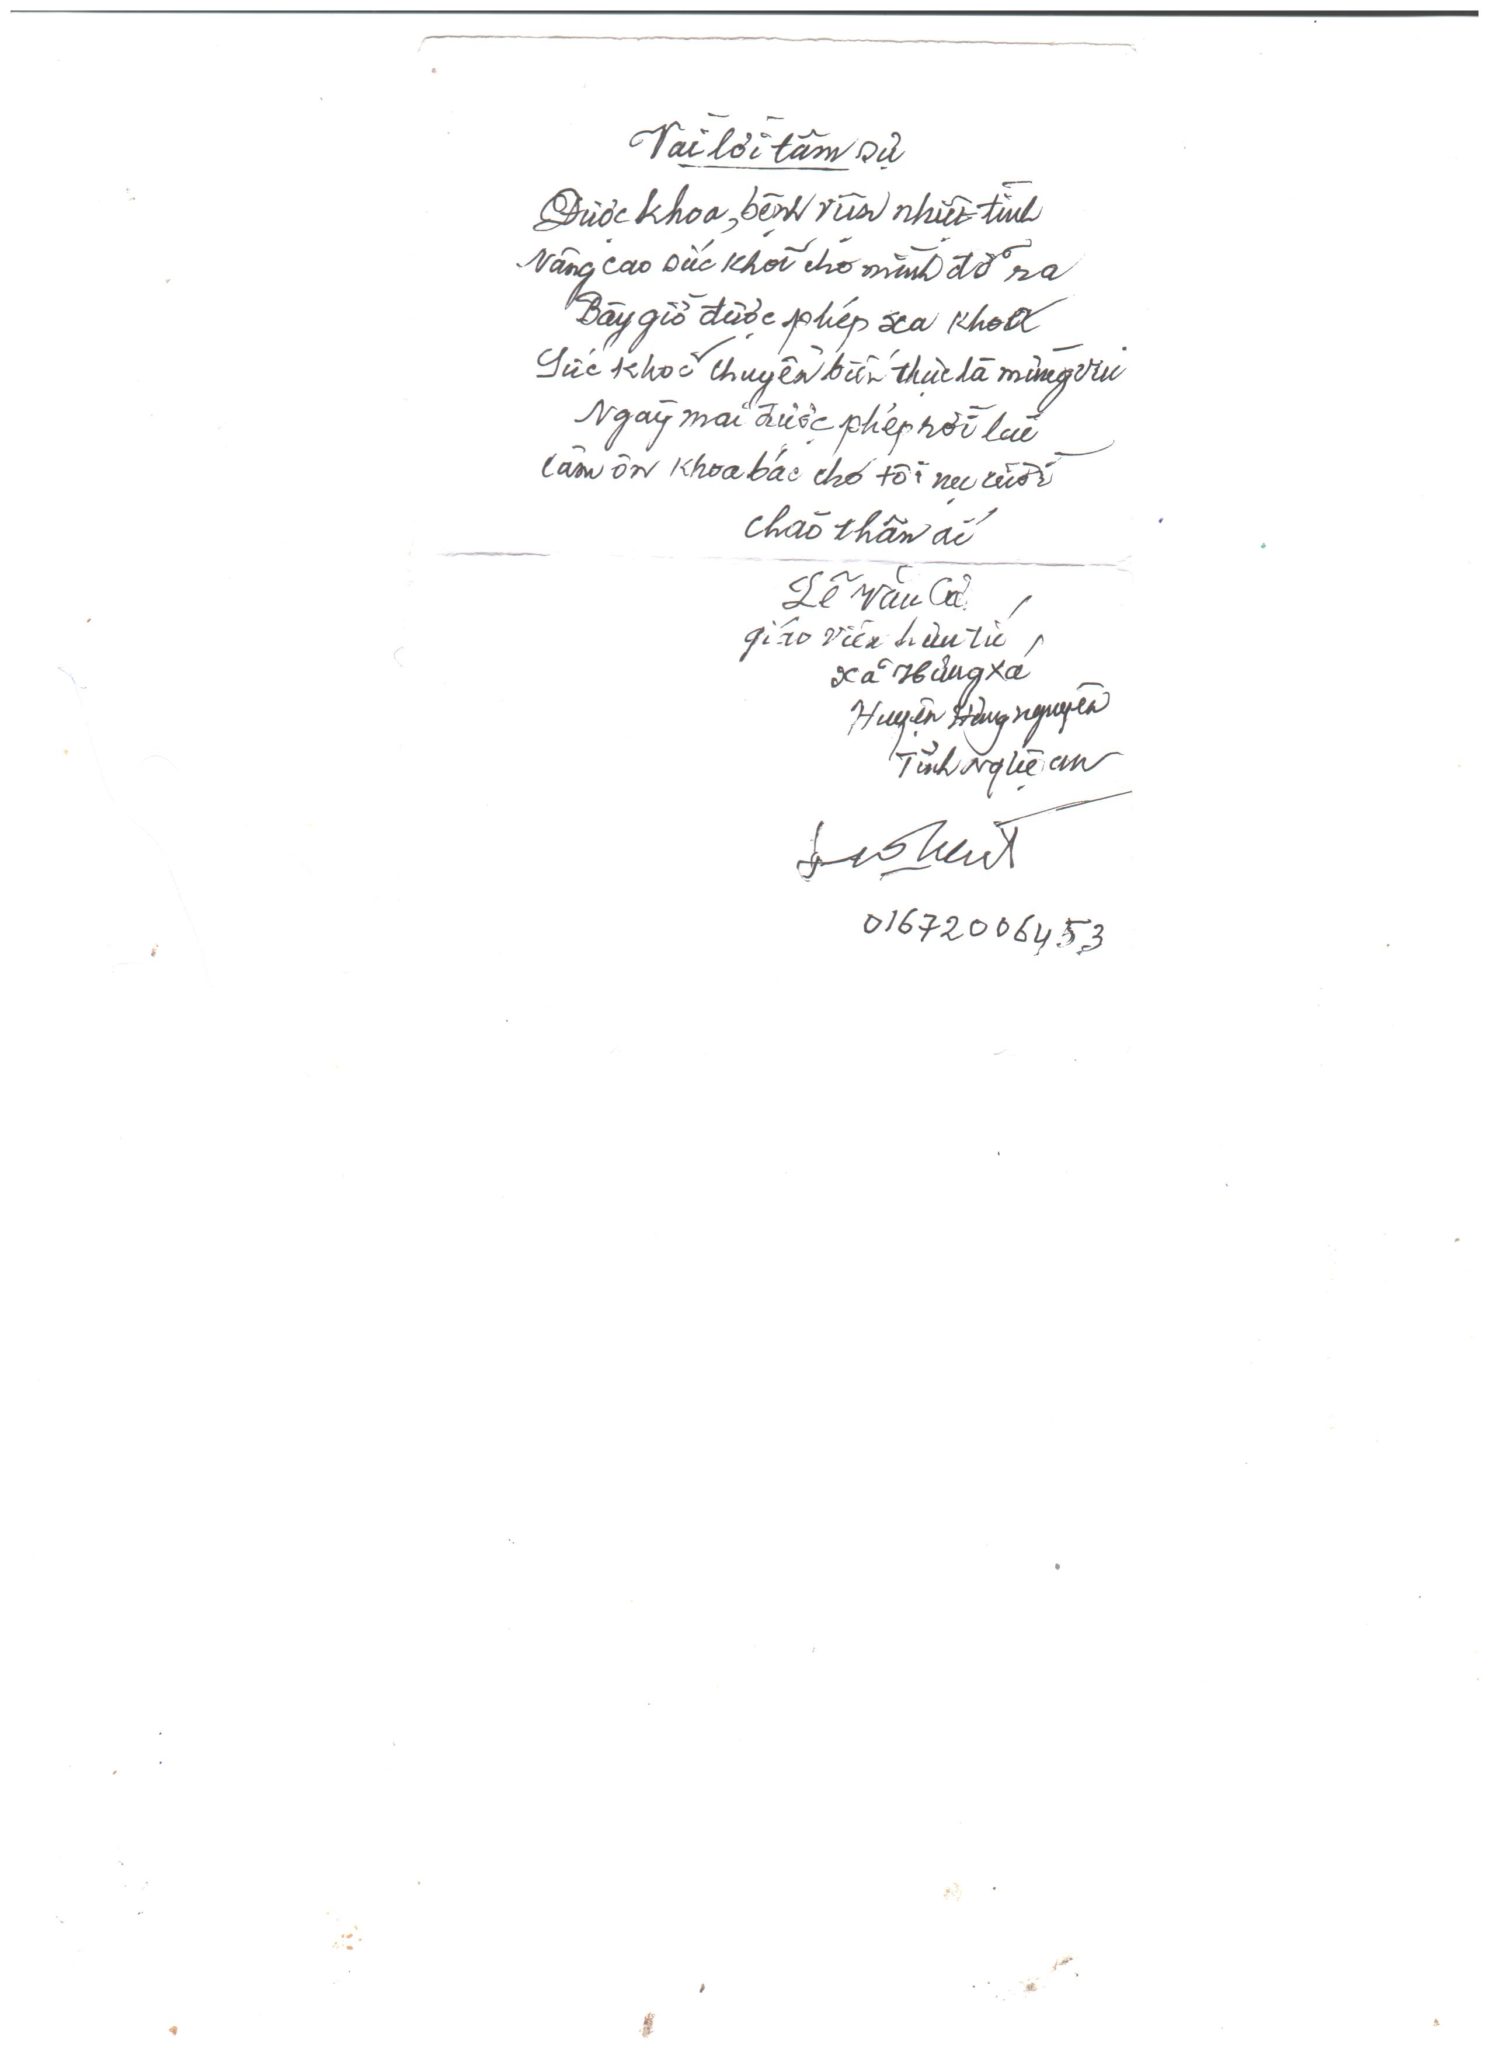 Vài lời tâm sự
Được khoa, bệnh viện nhiệt tình
Nâng cao sức khỏe cho mình đỡ ra
Bây giờ được phép xa khoa
Sức khoẻ chuyển biến thực là mừng vui
Ngày mai được phép rời lui
Cảm ơn khoa bác cho tôi nụ cười
Chào thân ái
Lê Văn Cả
giáo viên hưu trí
xã Hưng Xá
Huyện Hưng nguyên
Tỉnh Nghệ an
01672006453